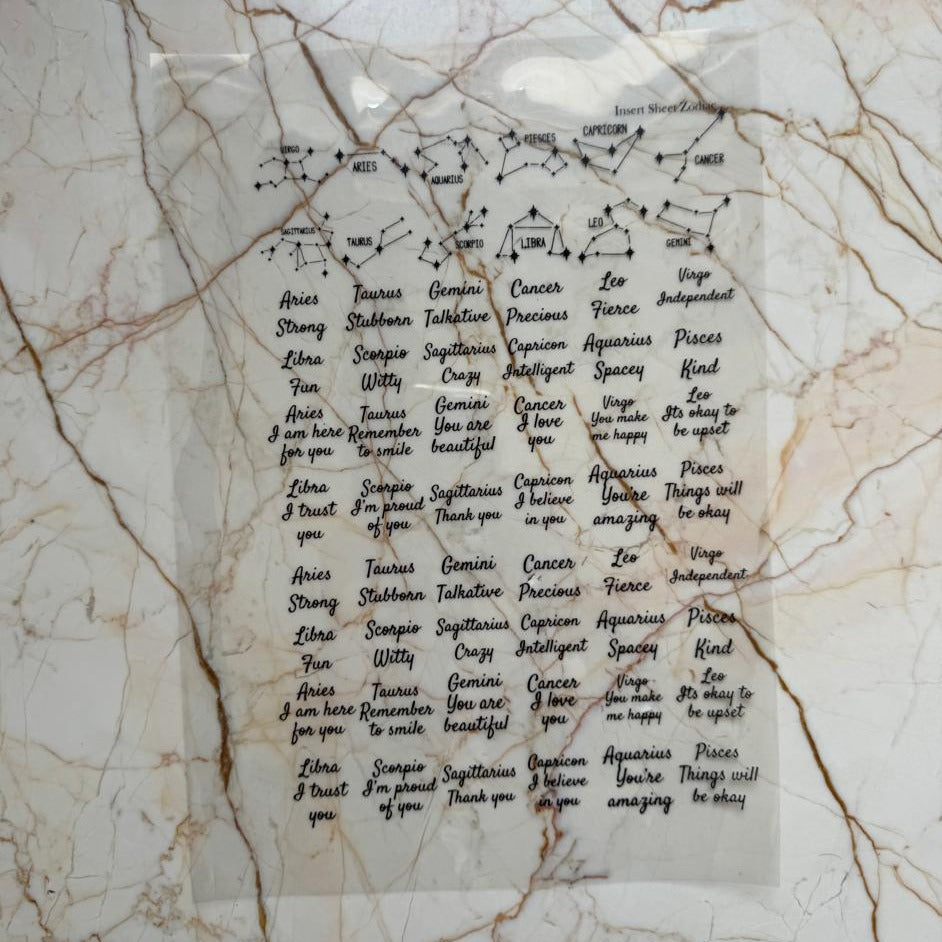 Insert Sheet Zodiac
VIRGO ARIES AQUARIUS PIESCES CAPRICORN CANCER
SAGITTARIUS TAURUS SCORPIO LIBRA LEO GEMINI
Aries Taurus Gemini Cancer Leo Virgo
Strong Stubborn Talkative Precious Fierce Independent
Libra Scorpio Sagittarius Capricon Aquarius Pisces
Fun Witty Crazy Intelligent Spacey Kind
Aries Taurus Gemini Cancer Virgo Leo
I am here Remember You are I love You make Its okay to
for you to smile beautiful you me happy be upset
Libra Scorpio Sagittarius Capricon Aquarius Pisces
I trust I'm proud Thank you I believe You're Things will
you of you in you amazing be okay
Aries Taurus Gemini Cancer Leo Virgo
Strong Stubborn Talkative Precious Fierce Independent
Libra Scorpio Sagittarius Capricon Aquarius Pisces
Fun Witty Crazy Intelligent Spacey Kind
Aries Taurus Gemini Cancer Virgo Leo
I am here Remember You are I love You make Its okay to
for you to smile beautiful you me happy be upset
Libra Scorpio Sagittarius Capricon Aquarius Pisces
I trust I'm proud Thank you I believe You're Things will
you of you in you amazing be okay